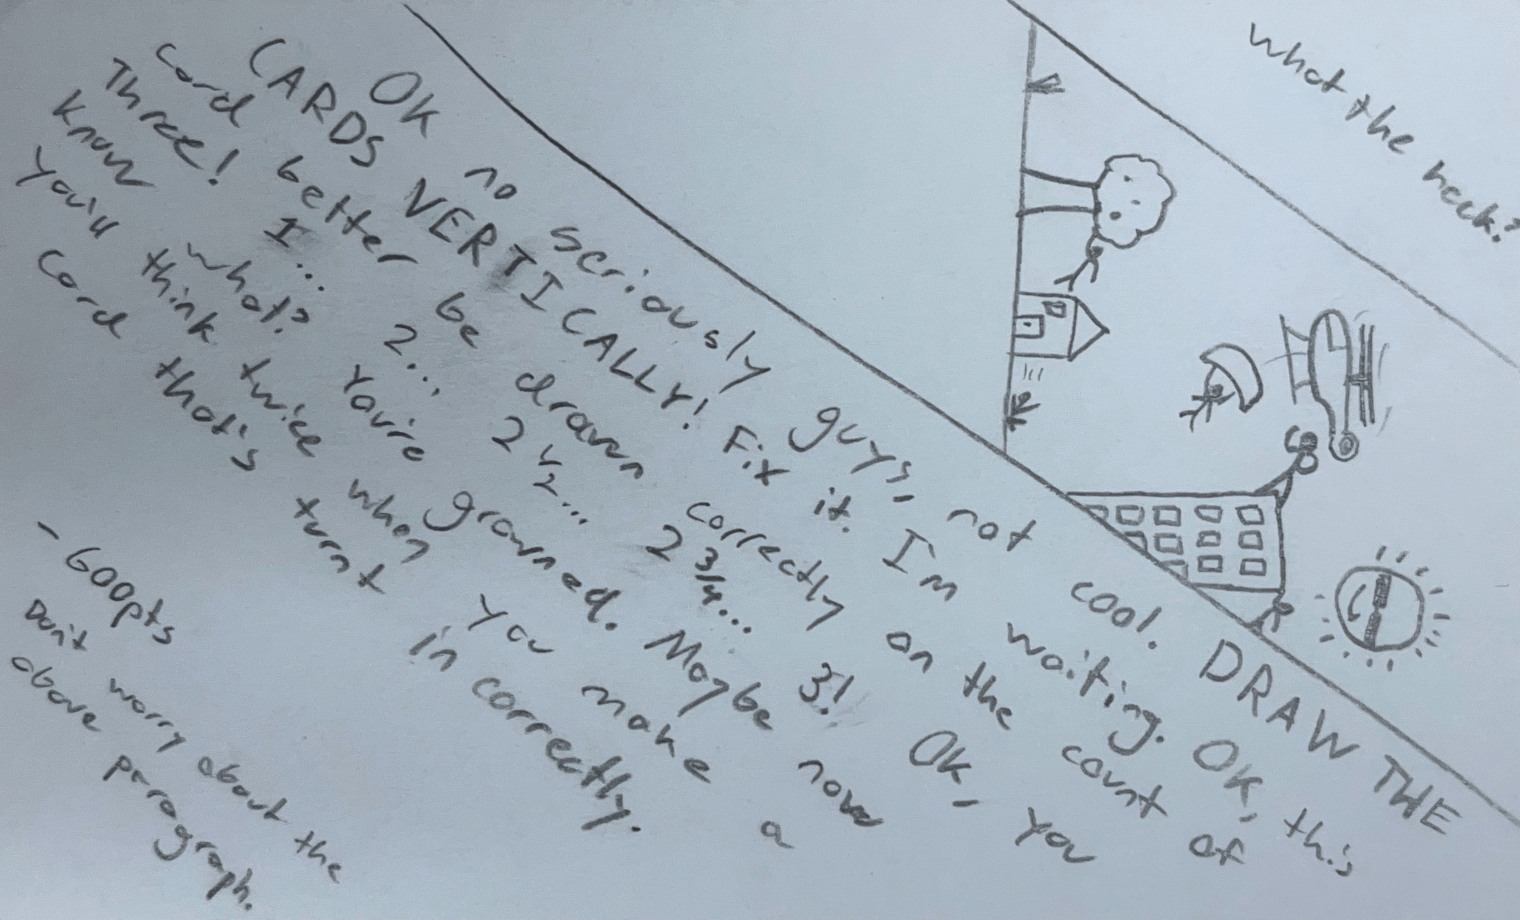 what the heck?
OK no seriously guys, not cool. DRAW THE
CARDS VERTICALLY! Fix it. I'm waiting. OK, this
card better be drawn correctly on the count of
Three! 1... 2... 2 1/2... 2 3/4... 3! OK, you
know what? You're grouned. Maybe now
you'll think twice when you make a
card that's turnt incorrectly.
-600pts
Don't worry about the
above paragraph.